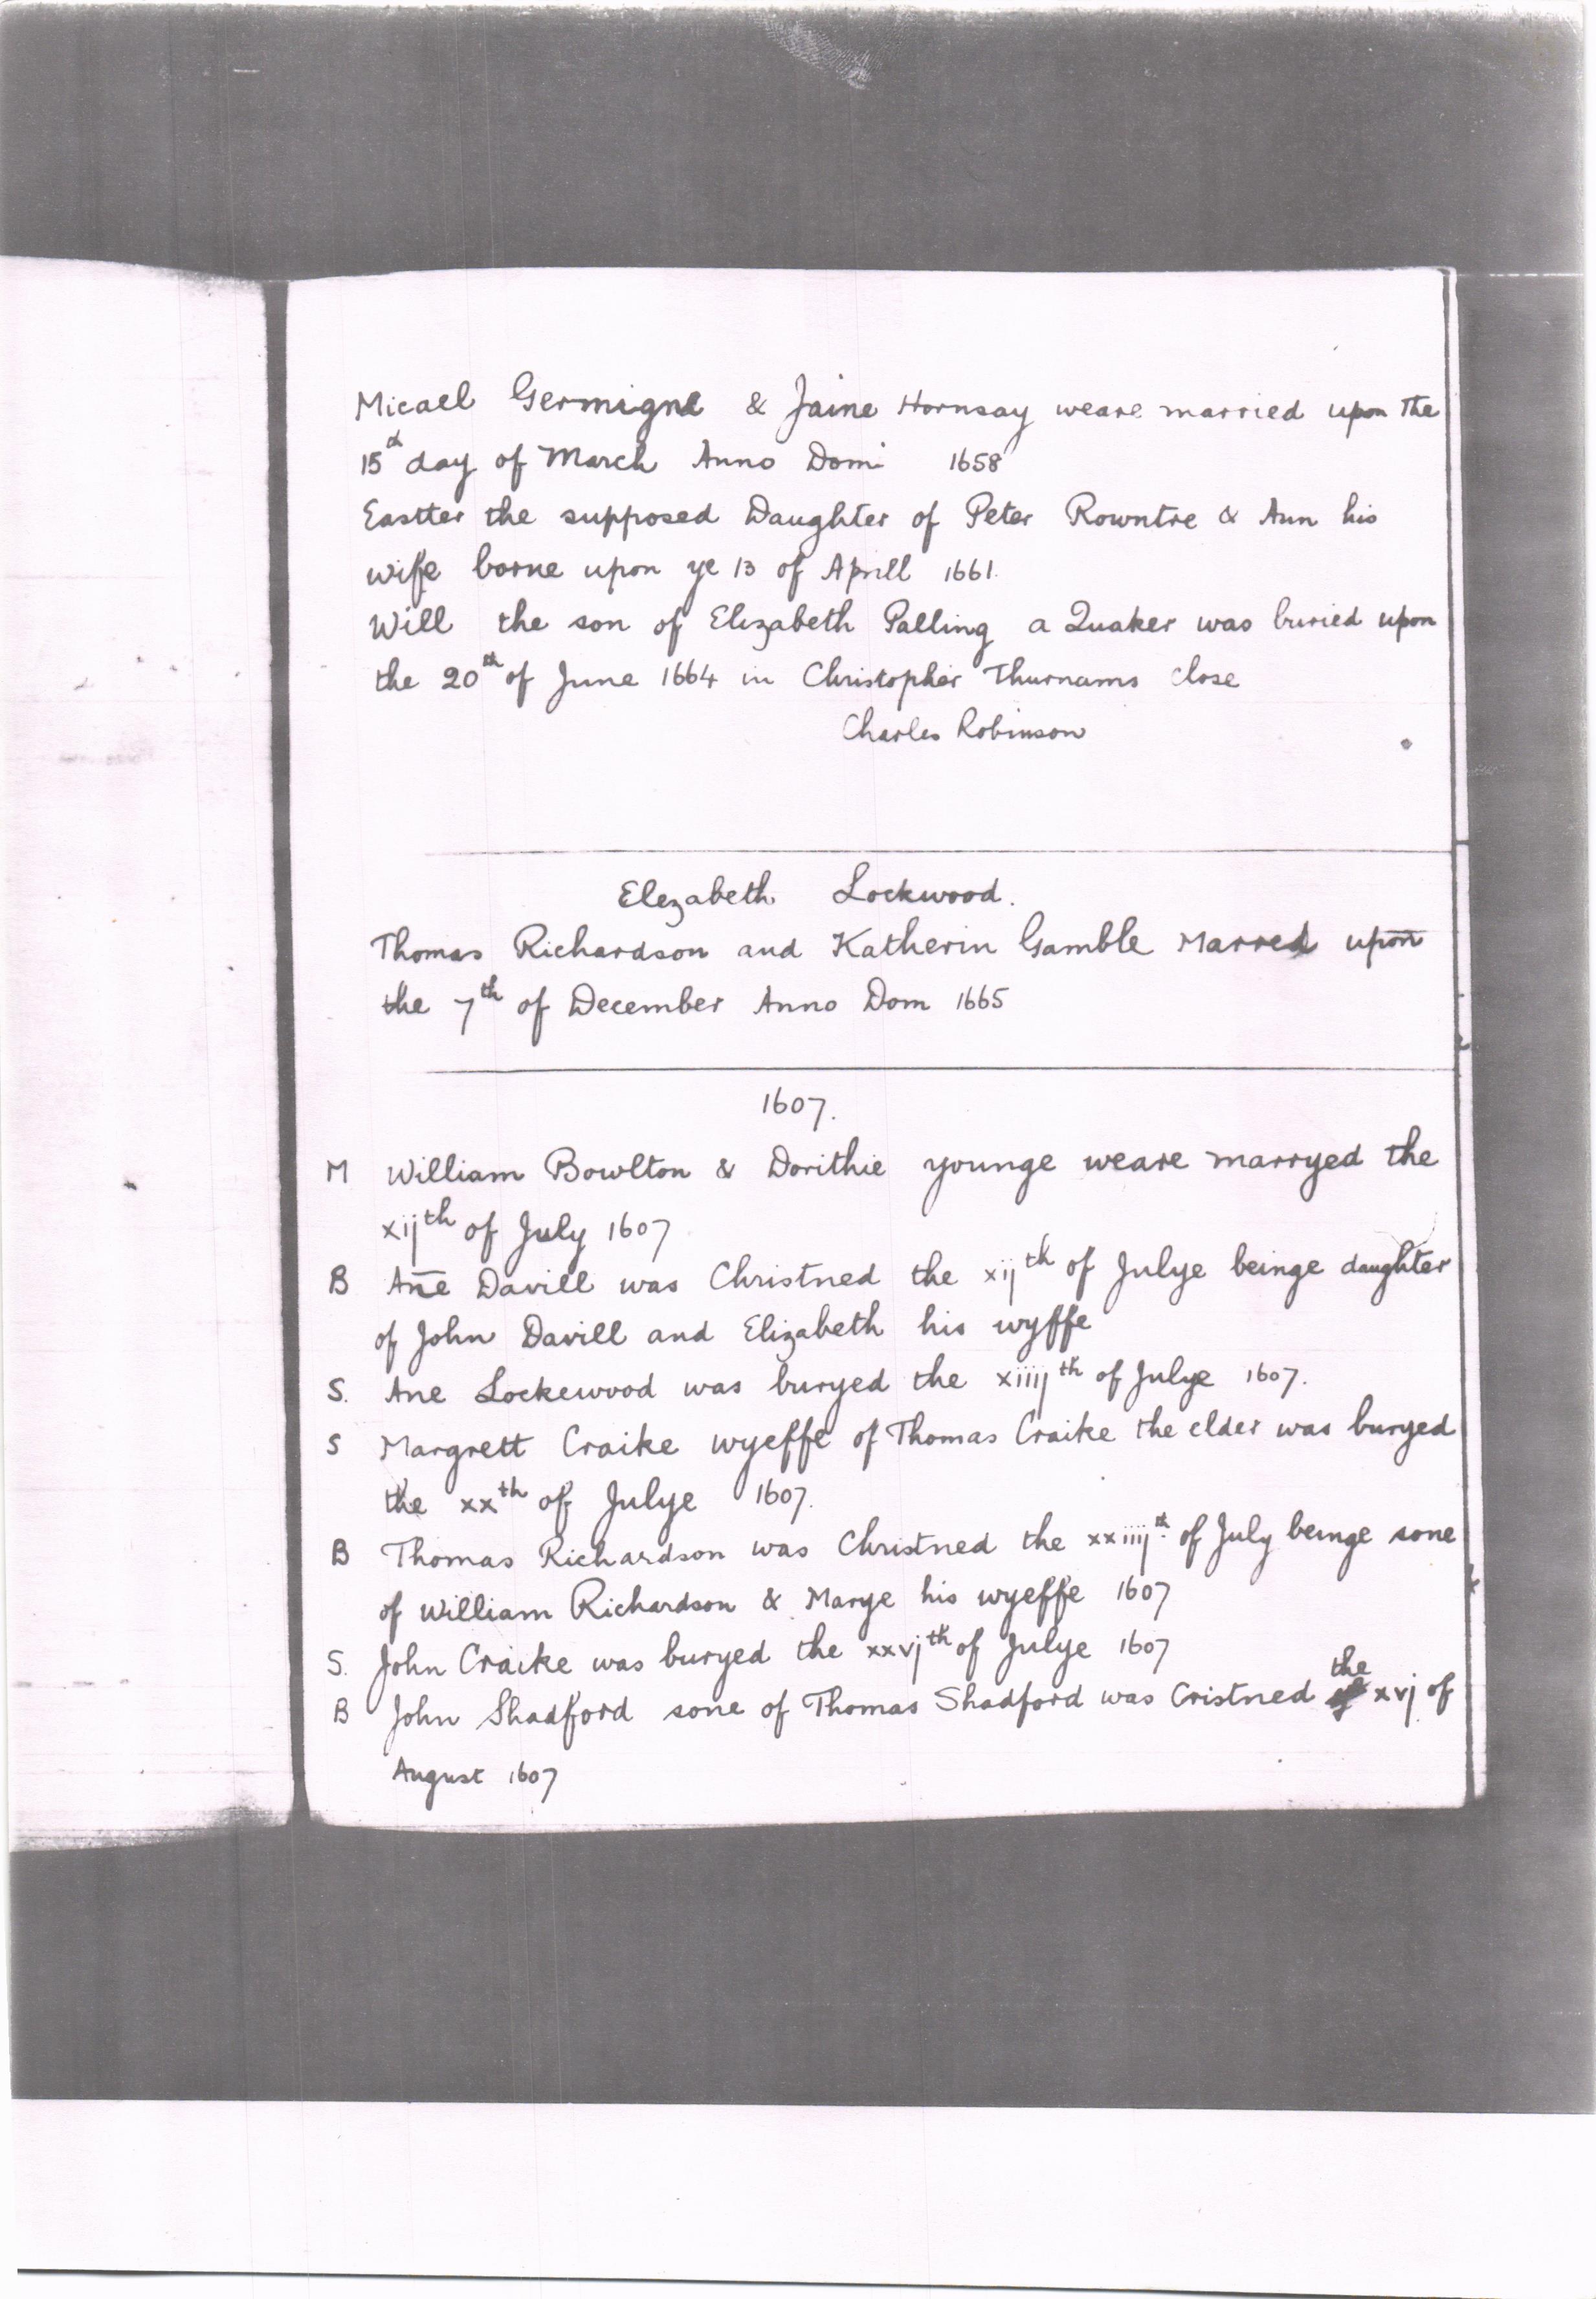 Micael Germigne & Jaine Hornsay weare married upon the
15th day of March Anno Domi 1658
Eastter the supposed Daughter of Peter Rowntre & Ann his
wife borne upon ye 13 of Aprill 1661.
Will the son of Elizabeth Palling a Quaker was buried upon
the 20th of June 1664 in Christopher Thurnams close
Charles Robinson
Elezabeth Lockwood.
Thomas Richardson and Katherin Gamble Marred upon
the 7th of December Anno Dom 1665
1607.
M William Bowlton & Dorithie younge weare marryed the
xijth of July 1607
B Añe Davill was Christned the xijth of Julye beinge daughter
of John Davill and Elizabeth his wyffe
S. Ane Lockewood was buryed the xiiijth of Julye 1607.
S Margrett Craike wyeffe of Thomas Craike the elder was buryed
the xxth of Julye 1607.
B Thomas Richardson was Christned the xxiiijth of July beinge sone
of William Richardson & Marye his wyeffe 1607
S. John Craike was buryed the xxvjth of Julye 1607
B John Shadford sone of Thomas Shadford was Cristned the xvj of
August 1607